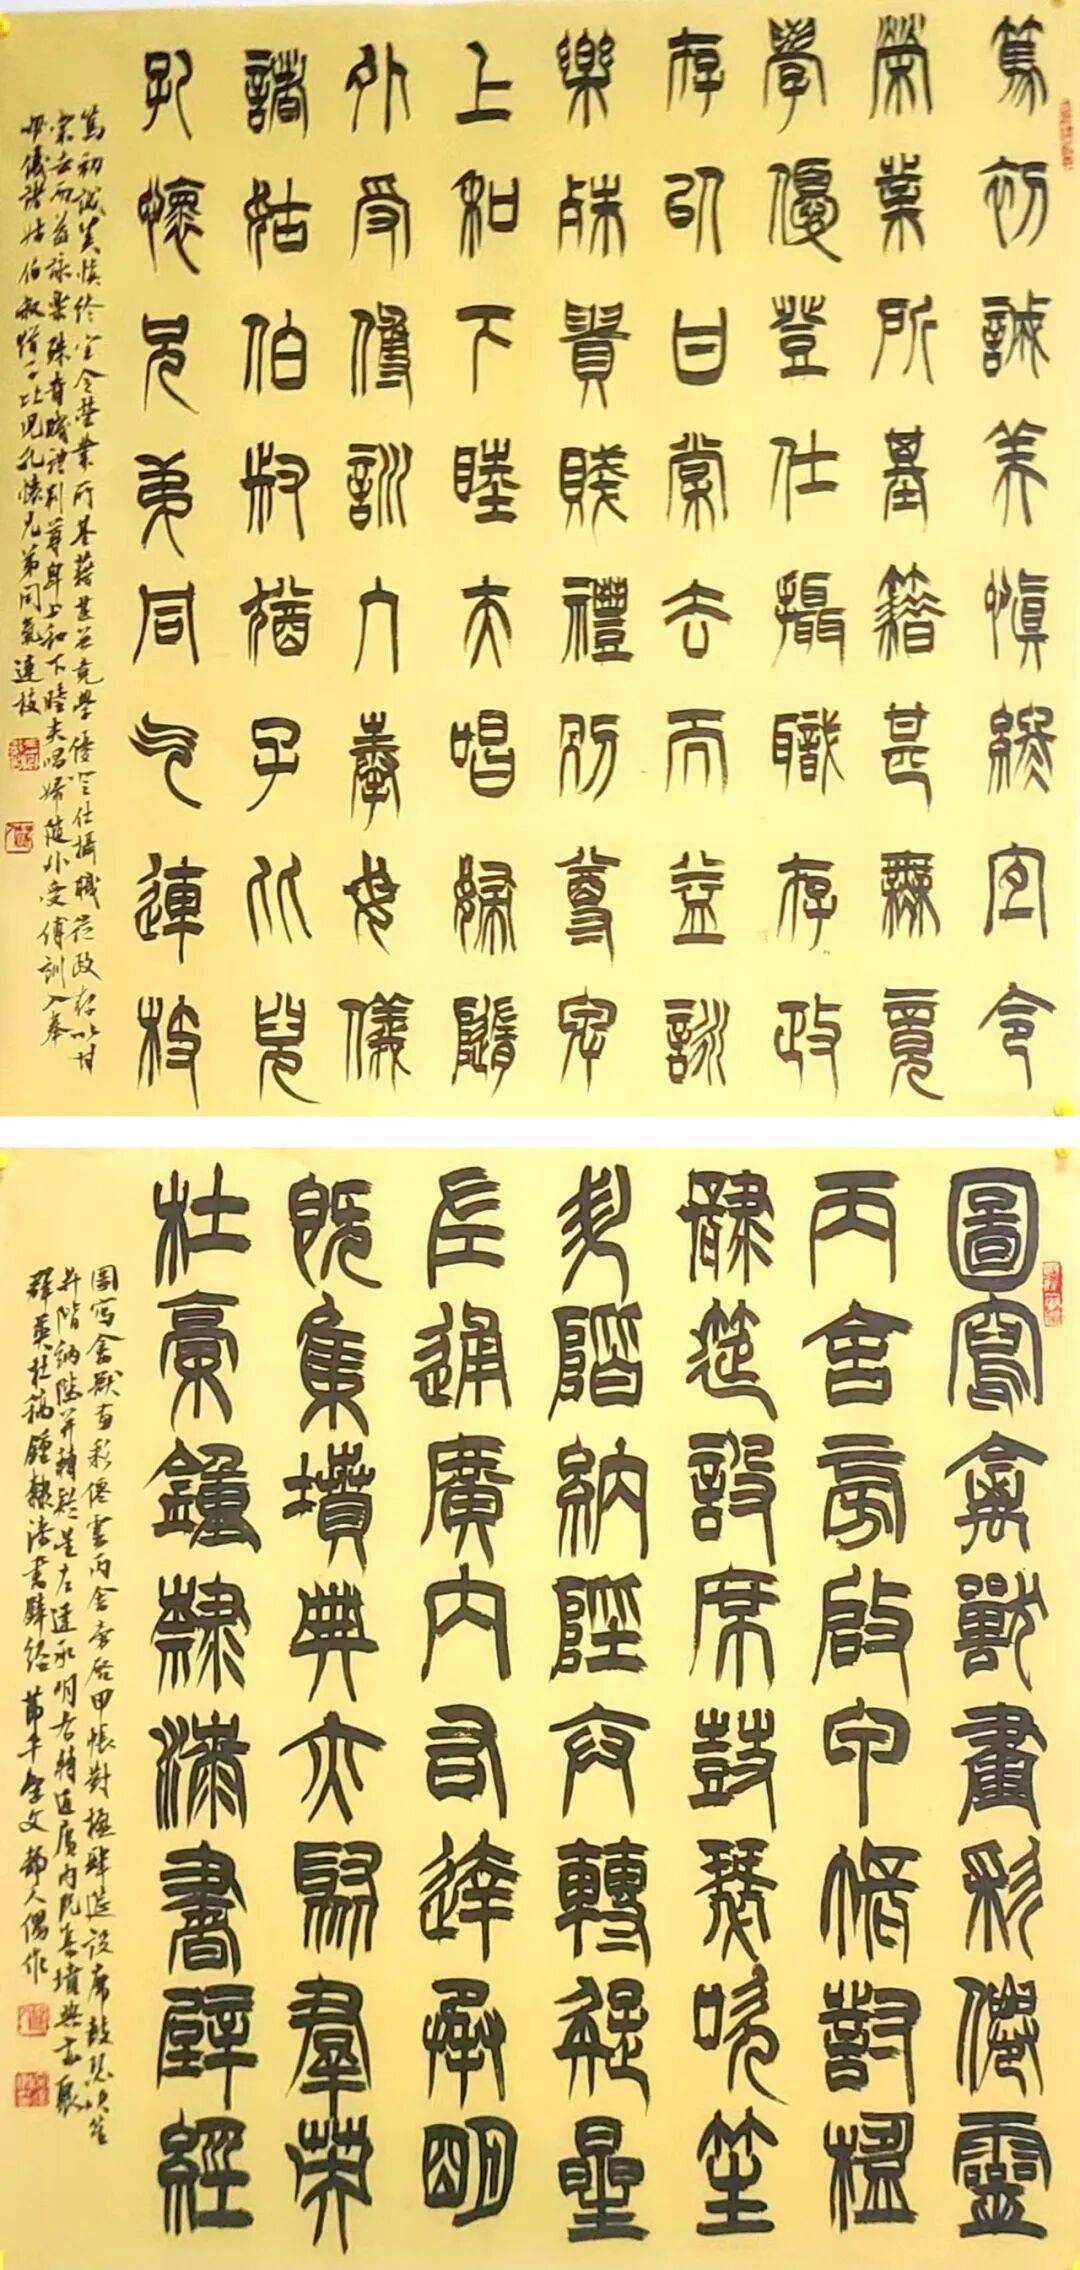 篤初誠美慎終宜令
榮業所基籍甚無竟
學優登仕攝職存政
存以甘棠去而益詠
樂殊貴賤禮別尊卑
上和下睦夫唱婦隨
外受傅訓入奉母儀
諸姑伯叔猶子比兒
孔懷兄弟同氣連枝
篤初誠美慎終宜令榮業所基藉甚無竟學優登仕攝職從政存以甘
棠去而益詠樂殊貴賤禮別尊卑上和下睦夫唱婦隨外受傅訓入奉
母儀諸姑伯叔猶子比兒孔懷兄弟同氣連枝
圖寫禽獸畫彩僊靈
丙舍旁啟甲帳對楹
肆筵設席鼓瑟吹笙
升階納陛弁轉疑星
左通廣內右達承明
既集墳典亦聚群英
杜稾鍾隸漆書壁經
圖寫禽獸畫彩僊靈丙舍旁啟甲帳對楹肆筵設席鼓瑟吹笙
升階納陛弁轉疑星左達承明右轉通廣內既集墳典亦聚
群英杜稿鍾隸漆書壁經 節千字文 靜人偶作